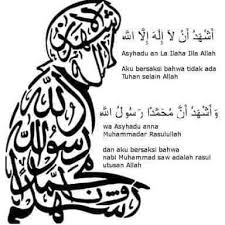 أَشْهَدُ أَنْ لاَ إِلَهَ إِلاَّ اللَّه
Asyhadu an La Ilaha Illa Allah
Aku bersaksi bahwa tidak ada
Tuhan selain Allah
وَ أَشْهَدُ أَنَّ مُحَمَّدًا رَسُولُ اللَّهِ
wa Asyhadu anna
Muhammadar Rasulullah
dan aku bersaksi bahwa
nabi Muhammad saw adalah rasul
utusan Allah